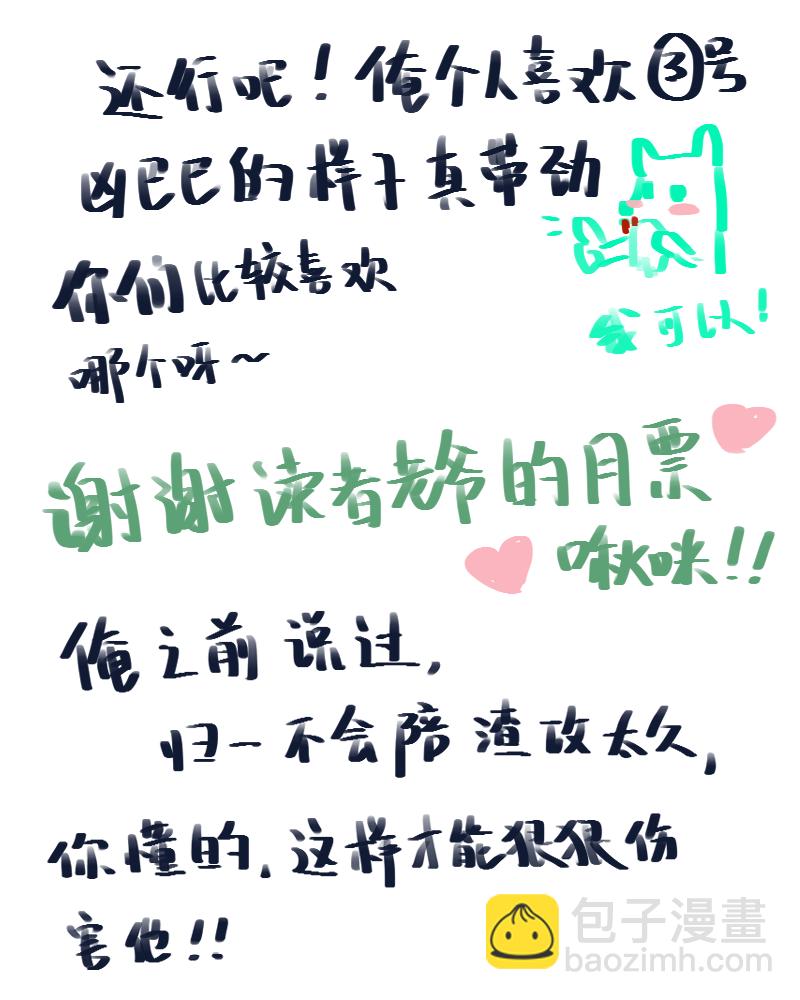 还行吧！俺个人喜欢③号
凶巴巴的样子真带劲
你们比较喜欢
哪个呀~
我可以！
谢谢读者老爷的月票
啾咪！！
俺之前说过，
归一不会陪渣攻太久，
你懂的，这样才能狠狠伤
害他！！
包子漫畫
baozimh.com